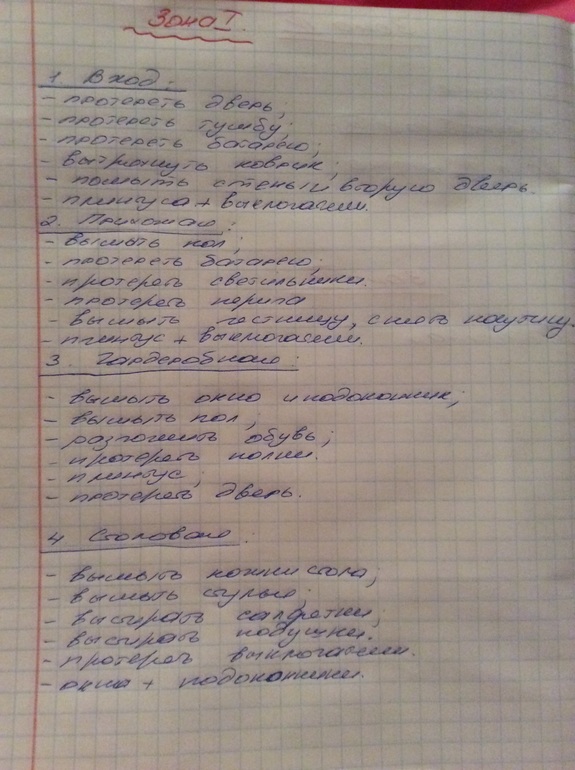 Зона I.
1. Вход:
- протереть дверь;
- протереть тумбу;
- протереть батарею;
- вытряхнуть коврик;
- помыть стены и вторую дверь.
- плинтуса + выключатели.
2. Прихожая:
- вымыть пол;
- протереть батарею;
- протереть светильники.
- протереть перила
- вымыть лестницу, снять паутину.
- плинтус + выключатели.
3. Гардеробная:
- вымыть окно и подоконник;
- вымыть пол;
- разложить обувь;
- протереть полки.
- плинтус;
- протереть дверь.
4 Столовая:
- вымыть ножки стола;
- вымыть стулья;
- выстирать салфетки;
- выстирать подушки.
- протереть выключатели.
- окна + подоконники.